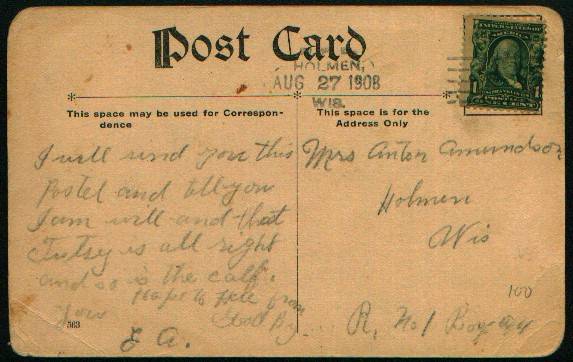 Post Card
HOLMEN,
AUG 27 1908
WIS.
This space may be used for Correspon-
dence
This space is for the
Address Only
I will send you this
Postel and tell you
I am well and that
Tutsy is all right
and so is the calf.
Hope to hear from
you Good By
E A.
563
Mrs Anton Amundson
Holmen
Wis
R. No 1 Box
100